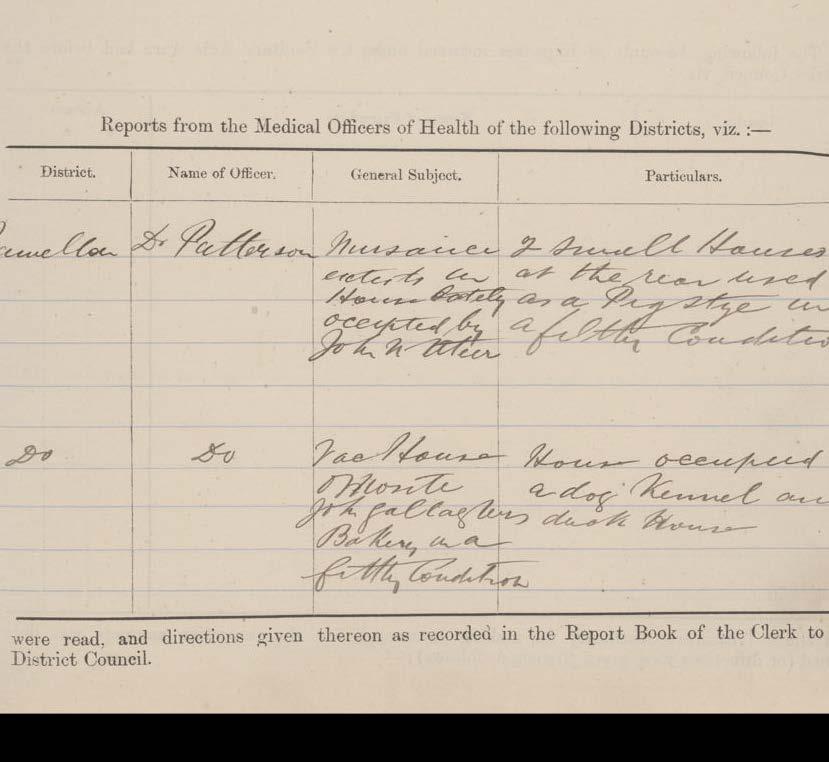 Reports from the Medical Officers of Health of the following Districts, viz. :—
District. Name of Officer. General Subject. Particulars.
Dr Patterson Nuisance 2 small Houses
exists in at the rear used
House lately as a Pig stye in
occupied by a filthy Conditio
John
Do Do Vac House House occupied
oposite a dog Kennel an
John Gallaghers duck House
Bakery in a
filthy Condition
were read, and directions given thereon as recorded in the Report Book of the Clerk to
District Council.